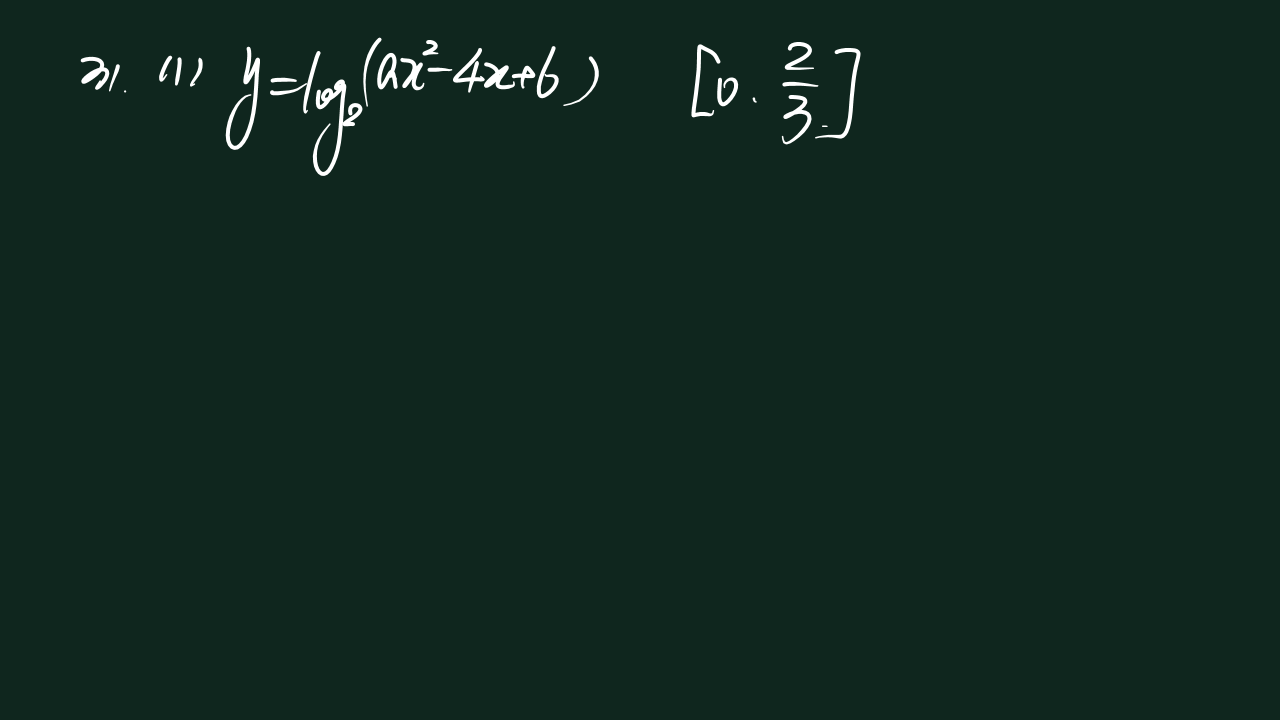 21. (1) y=log₂(ax²-4x+6) [0. 2/3]